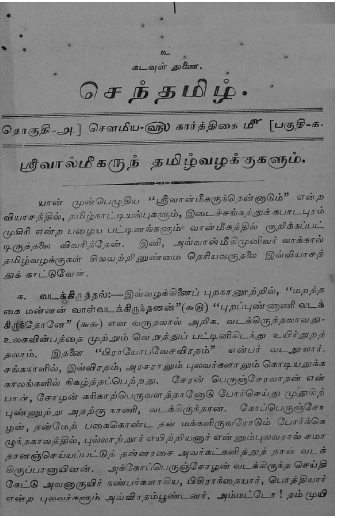 உ
கடவுள் துணை.
செந்தமிழ்.
தொகுதி-அ.] சௌமிய-௵ கார்த்திகை ௴ [பகுதி-க.
ஸ்ரீவால்மீகருந் தமிழ்வழக்குகளும்.
யான் முன்பெழுதிய "ஸ்ரீவான்மீகருந்தென்னாடும்" என்ற
வியாசத்தில், தமிழ்நாட்டியல்புகளும், இடைச்சங்கத்துக் கபாடபுரம்
முதிரி என்ற பழைய பட்டினங்களும் வான்மீகத்தில் குறிக்கப்பட்
டிருத்தலை விவரித்தேன். இனி, அவ்வான்மீகிமுனிவர் வாக்கால்
தமிழ்வழக்குகள் சிலவற்றினுண்மை தெரியவருதலை இவ்வியாசத்
துக் காட்டுவேன்.
க. வடக்கிருத்தல்:—இவ்வழக்கினைப் புறநானூற்றில், "மறத்த
கை மன்னன் வாள்வடக்கிருந்தனன்" (௬௫) "புறப்புண்ணாணி வடக்
கிருந்தோனே" (௬௬) என வருதலால் அறிக. வடக்கிருத்தலாவது-
உலகவின்பத்தை முற்றும் வெறுத்துப் பட்டினிகிடந்து உயிர்துறத்
தலாம். இதனை "பிராயோபவேசவிரதம்" என்பர் வடநூலார்.
சங்ககாலில், இவ்விரதம், அரசராலும் புலவர்களாலும் நெடியதுக்க
காலங்களில் நிகழ்த்தப்பெற்றது. சேரன் பெருஞ்சேரலாதன் என்
பான், சோழன் கரிகாற்பெருவளத்தானோடு போர்செய்து முதுகிற்
புண்ணுற்று அதற்கு நாணி, வடக்கிருந்தான். கோப்பெருஞ்சோ
ழன், தன்மேற் பகைகொண்ட தன் மக்களிருவரோடும் போர்க்கெ
ழுந்தகாலத்தில், புல்லாற்றூர் எயிற்றியனார் என்னும்புலவரால் சமா
தானஞ்செய்யப்பட்டுத் தன்னரசை அவர்கட்களித்துத் தான் வடக்
கிருப்பானாயினன். அக்கோப்பெருஞ்சோழன் வடக்கிருந்த செய்தி
கேட்டு அவனாருயிர் நண்பர்களாகிய, பிசிராந்தையார், பொத்தியார்
என்ற புலவர்களும் அவ்விரதம்பூண்டனர். அம்மட்டோ! தம்முயி